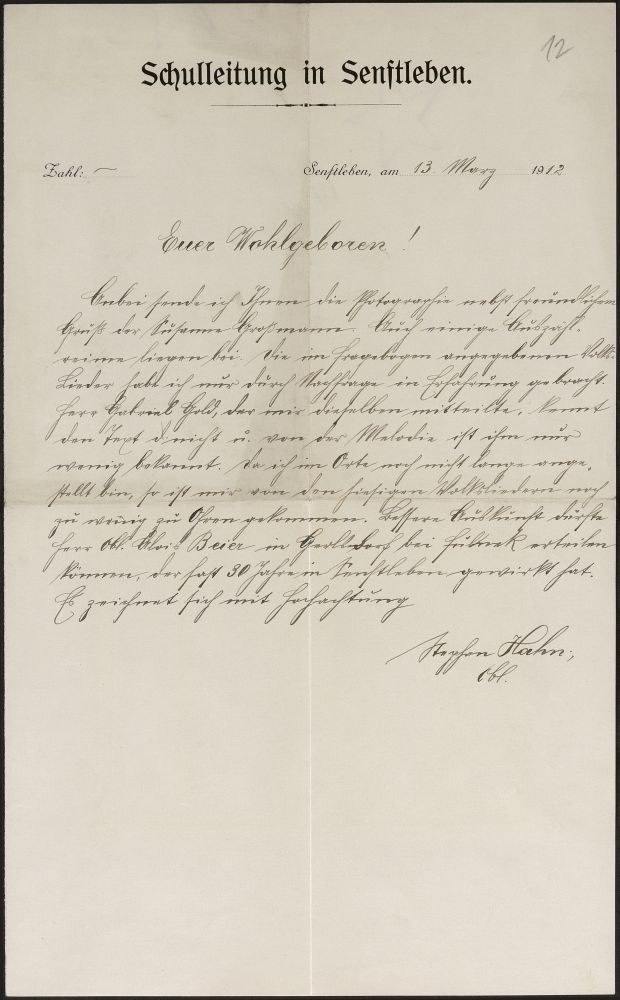 12
Schulleitung in Senftleben.
Zahl: ~
Senftleben, am 13. März 1912
Euer Wohlgeboren!
Anbei sende ich Ihnen die Photographie nebst freundlichem
Gruß der Susanne Großmann. Auch einige Auszähl-
reime liegen bei. Die im Fragebogen angegebenen Volks-
Lieder habe ich nur durch Nachfrage in Erfahrung gebracht.
Herr Gabriel Gold, der mir dieselben mitteilte, kennt
den Text nicht u. von der Melodie ist ihm nur
wenig bekannt. Da ich im Orte noch nicht lange ange-
stellt bin, so ist mir von den hiesigen Volksliedern noch
zu wenig zu Ohren gekommen. Bessere Auskunft dürfte
Herr Obl. Alois Beier in bei Fulnek erteilen
können, der fast 30 Jahre in Senftleben gewirkt hat.
Es zeichnet sich mit Hochachtung
Stephan Hahn,
Obl.